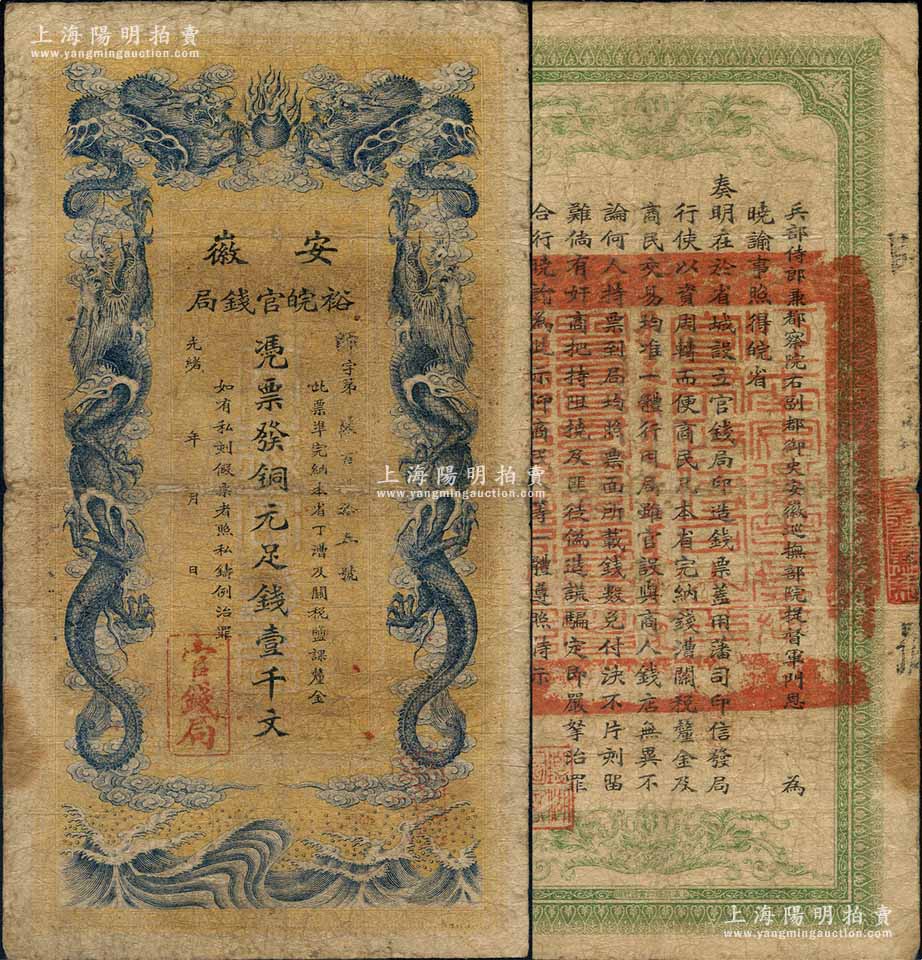 上海陽明拍賣
www.yangmingauction.com
安徽
裕皖官錢局
字第 百拾五號
此票準完納本省丁漕及關稅鹽課釐金
憑票發銅元足錢壹千文
如有私刻假票者照私鑄例治罪
光緒 年 月 日
官錢局
上海陽明拍賣
www.yangmingauction.com
兵部侍郎兼都察院右副都御史安徽巡撫部院提督軍門恩 為
曉諭事照得皖省
奏明在於省城設立官錢局印造錢票蓋用藩司印信發局
行使以資周轉而便商民凡本省完納錢漕關稅釐金及
商民交易均准一體行用局雖官設與商人錢店無異不
論何人持票到局均照票面所載錢數兌付決不片刻留
難倘有奸商把持阻撓及匪徒偽造誆騙定即嚴拏治罪
合行曉諭為此示仰商民 等一體遵照特示
上海陽明拍賣
www.yangmingauction.com